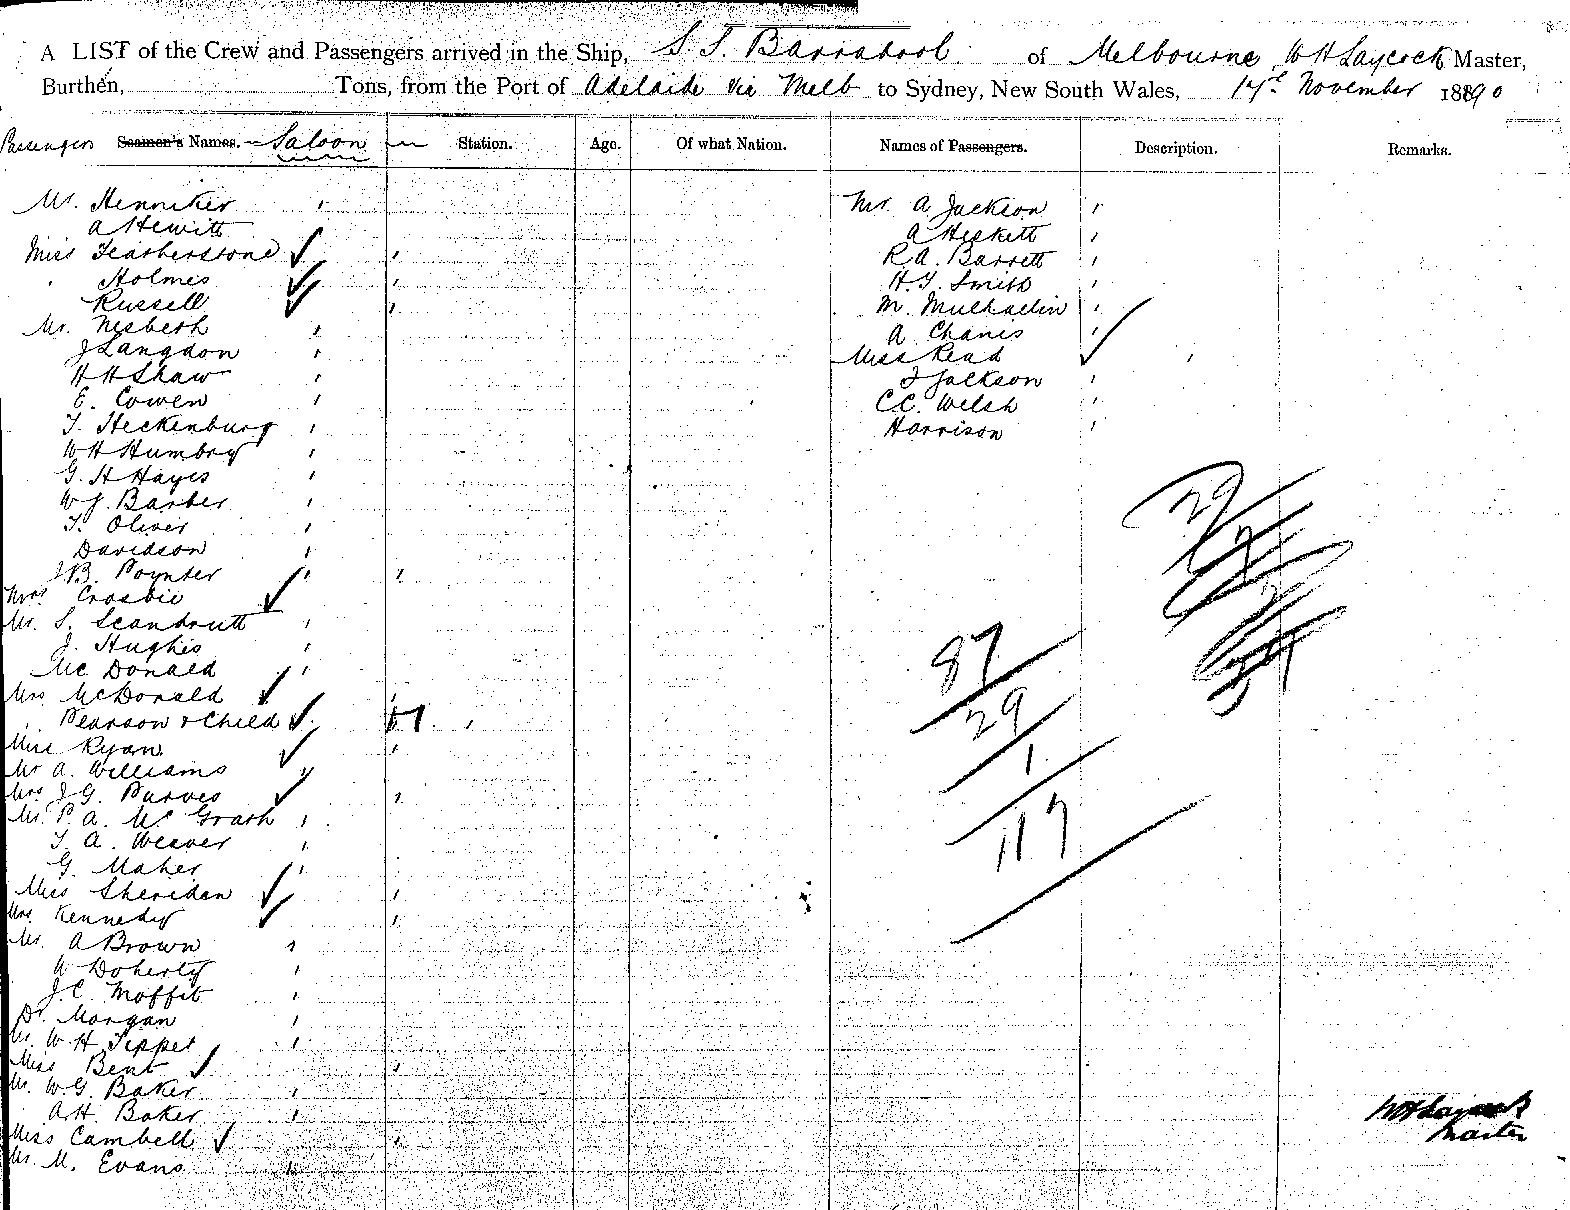 A LIST of the Crew and Passengers arrived in the Ship, S. S. Barrabool of Melbourne W H Laycock Master,
Burthen, Tons, from the Port of Adelaide via Melb to Sydney, New South Wales, 17th November 1890
Passengers Seamen's Names. Saloon Station. Age. Of what Nation. Names of Passengers. Description. Remarks.
Mr. Henniker
A Hewitt
Miss Featherstone
Holmes
Russell
Mr. Nesbeth
J Langdon
H H Shaw
E. Cowen
T. Heckenburg
W H Humbry
G. H Hayes
W J. Barber
T. Oliver
Davidson
J B. Poynter
Mrs Crosbie
Mr. S.
J. Hughes
Mc Donald
Mrs McDonald
Pearson & Child
Miss Ryan
Mr A. Williams
Mrs J G. Purves
Mr. P. A. Mc Grath
T A. Weaver
G. Maher
Miss Sheridan
Mrs. Kennedy
Mr. A Brown
W Doherty
J. C. Moffit
Dr. Morgan
Mr. W H Tippet
Miss Bent
Mr. W. G. Baker
A H. Baker
Miss Cambell
Mr. M. Evans
Mr. A Jackson
A Heskett
R A. Barrett
H. T. Smith
M.
A Chanes
Miss Read
F Jackson
C C. Welsh
Harrison
29
87
29
1
117
W H Laycock
Master